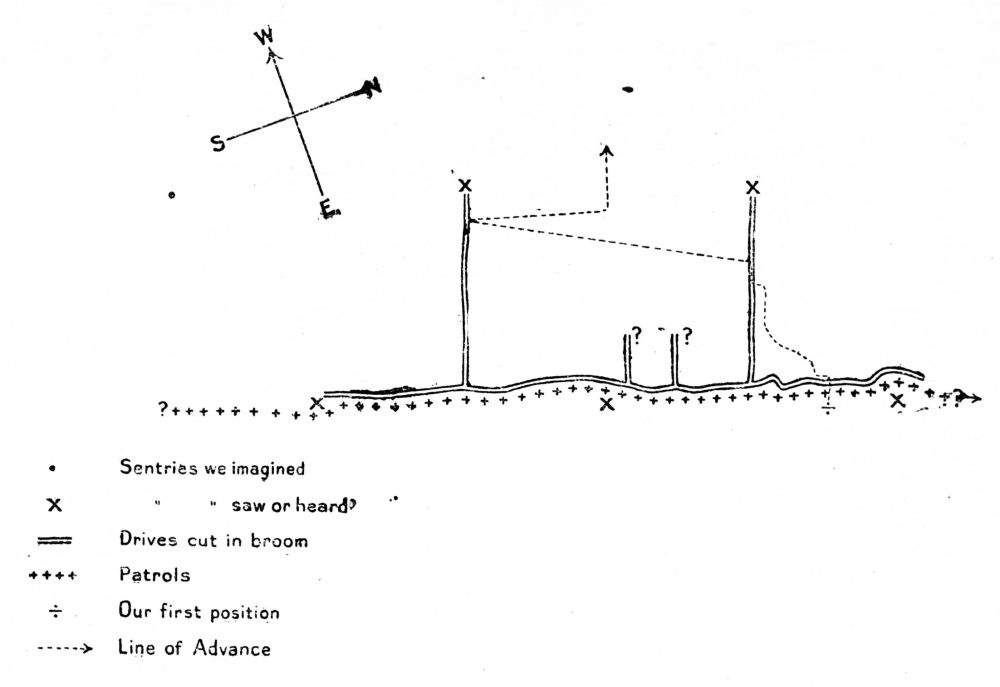 W
N
S
E.
X
X
?
?
?
X
X
X
?
Sentries we imagined
X " " saw or heard
Drives cut in broom
++++ Patrols
÷ Our first position
Line of Advance